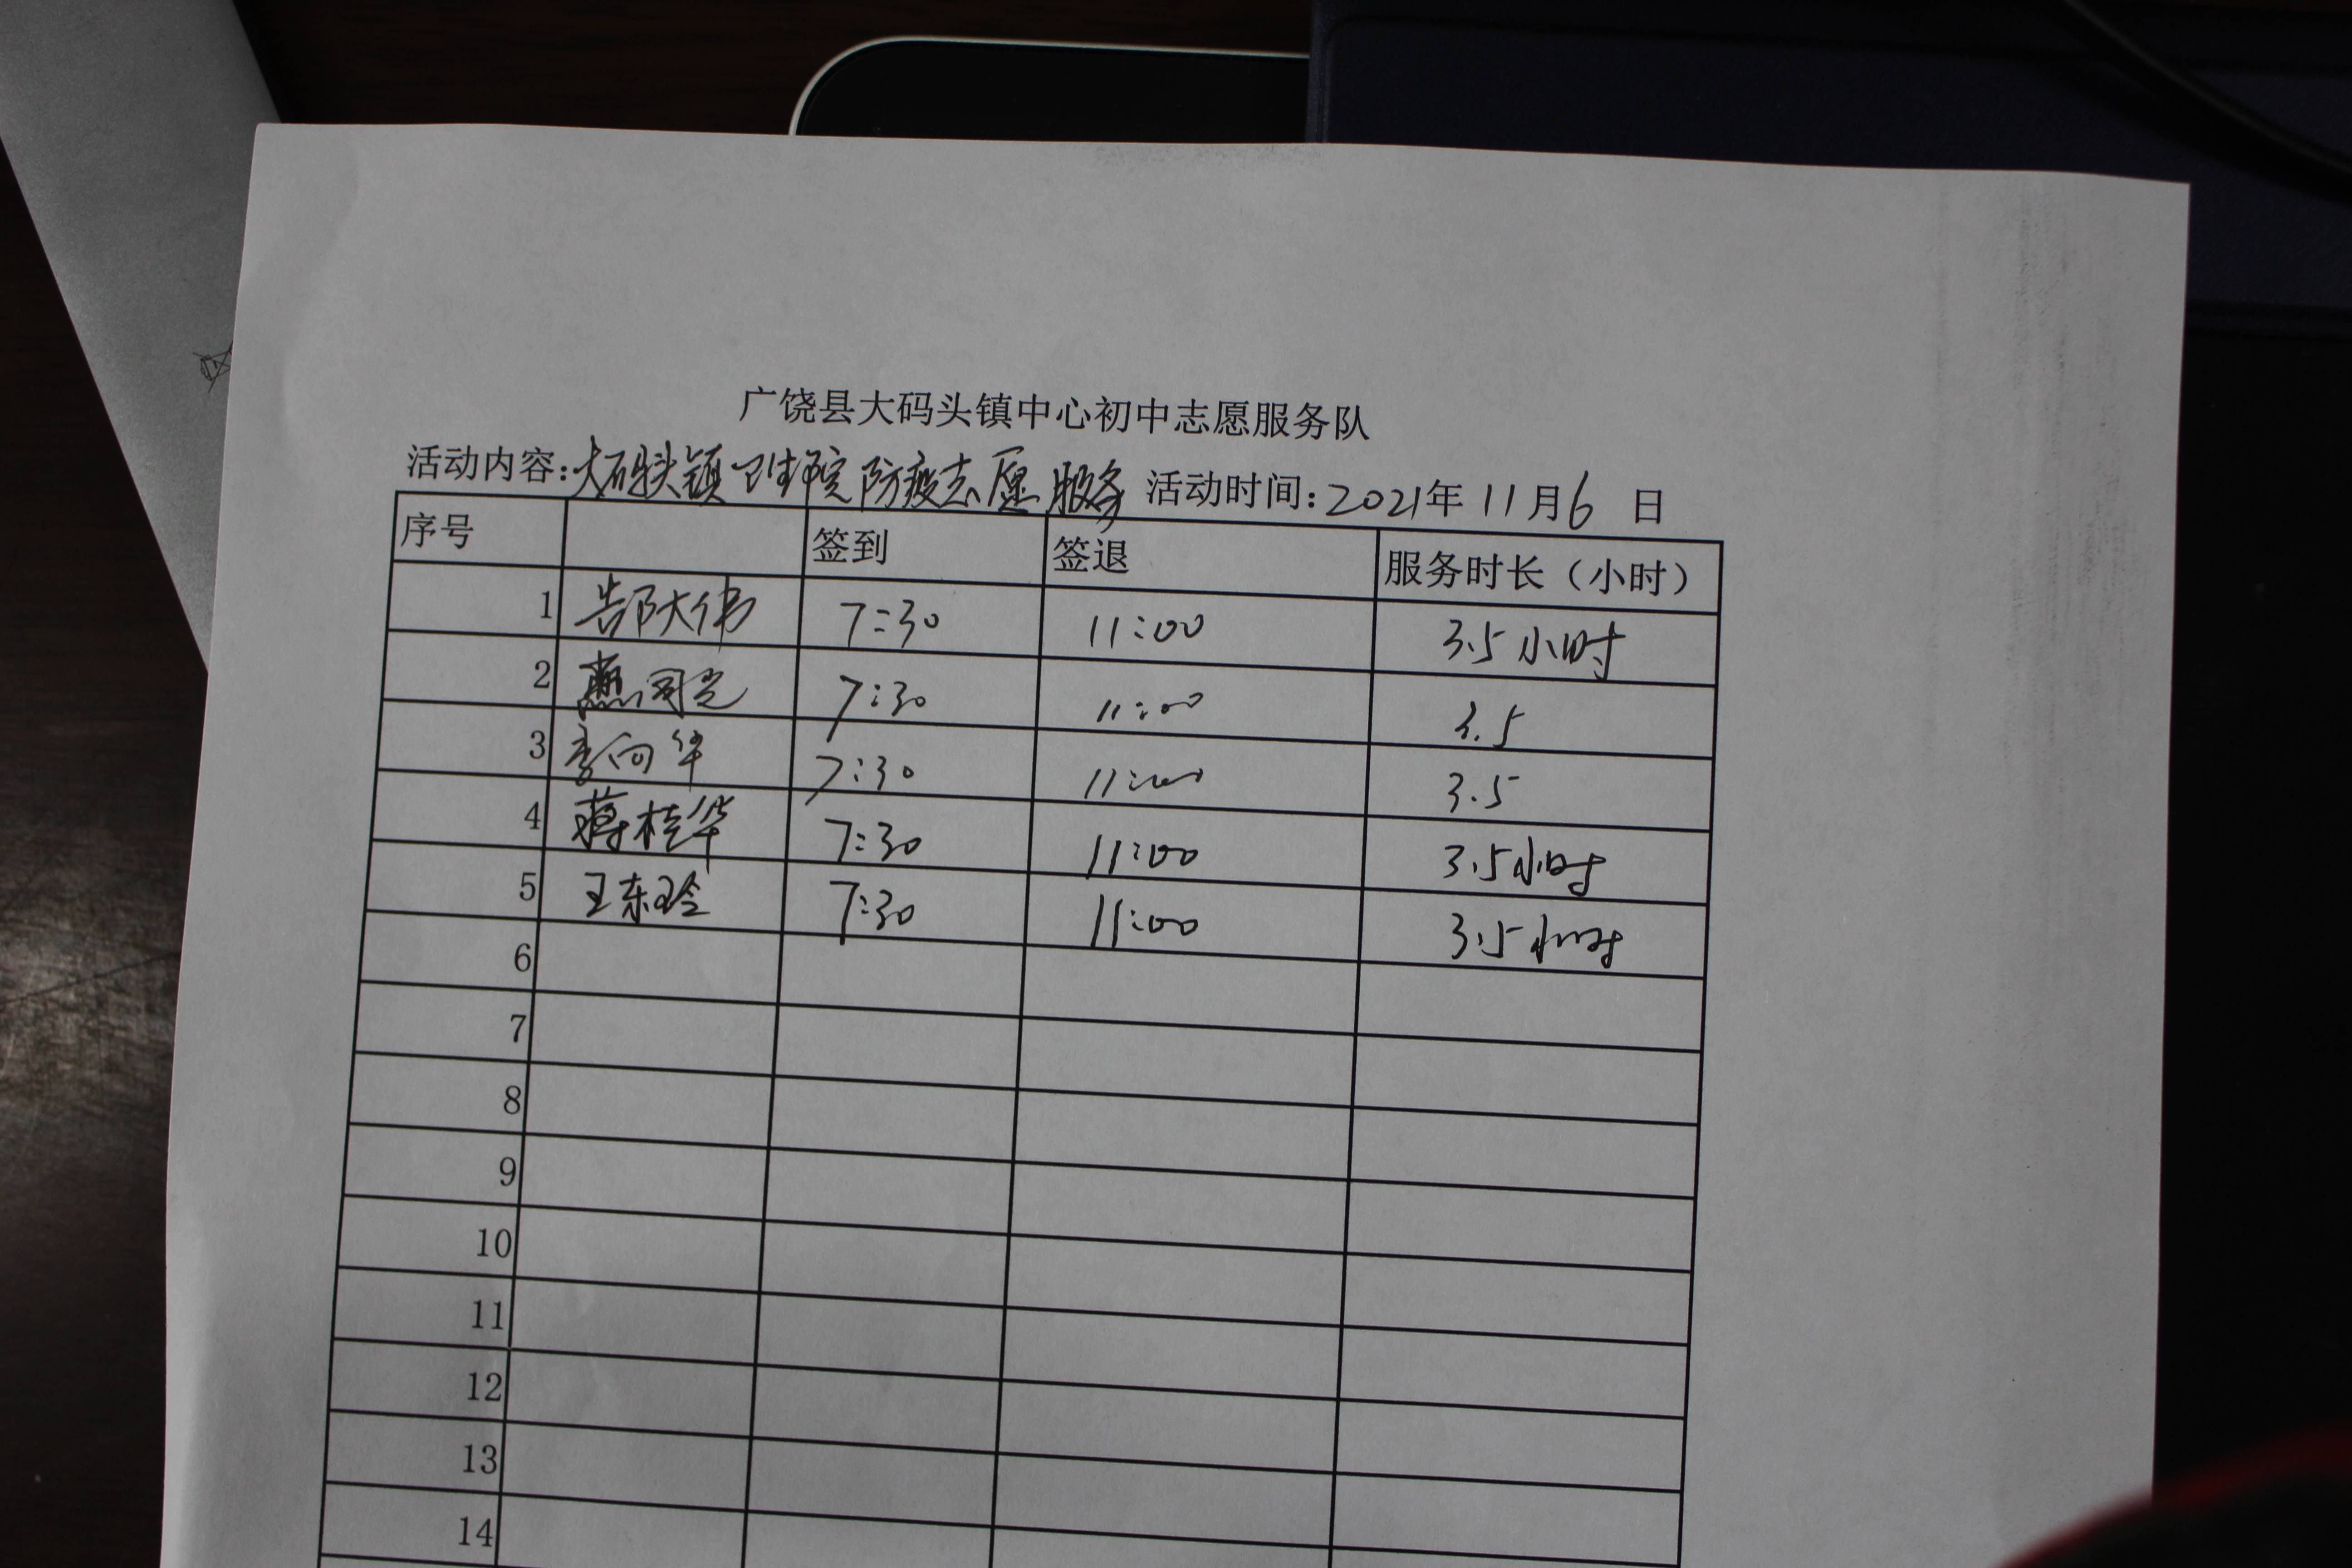 广饶县大码头镇中心初中志愿服务队
活动内容:大码头镇卫生院防疫志愿服务 活动时间:2021年11月6日
序号 签到 签退 服务时长（小时）
1 郜大伟 7:30 11:00 3.5小时
2 燕同光 7:30 11:00 3.5
3 李向华 7:30 11:00 3.5
4 蒋桂华 7:30 11:00 3.5小时
5 王东玲 7:30 11:00 3.5小时
6
7
8
9
10
11
12
13
14